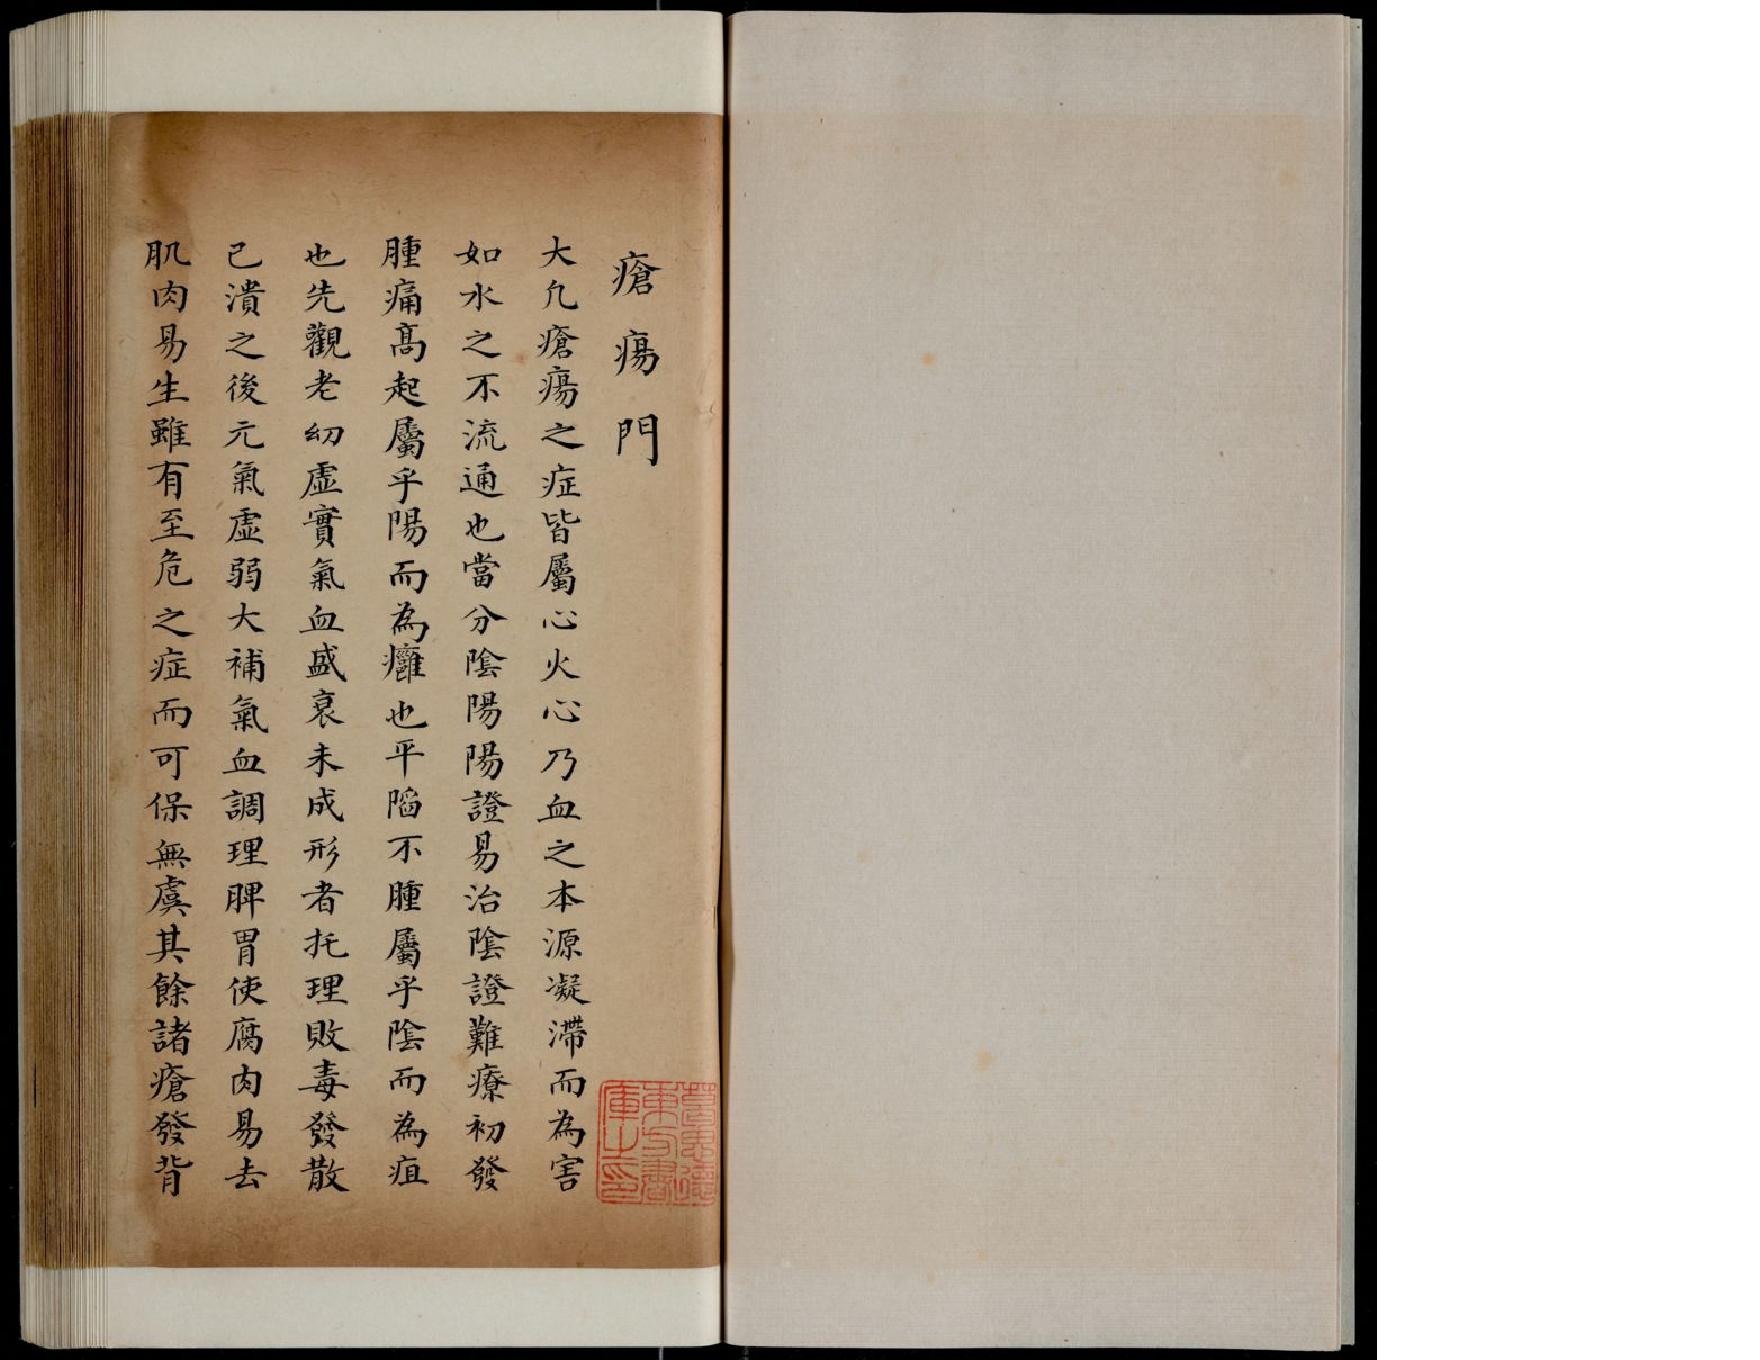 瘡瘍門
大凢瘡瘍之症皆屬心火心乃血之本源凝滯而為害
如水之不流通也當分陰陽陽證易治陰證難療初發
腫痛髙起屬乎陽而為癰也平陷不腫屬乎陰而為疽
也先觀老幼虛實氣血盛衰未成形者托理敗毒發散
已潰之後元氣虛弱大補氣血調理脾胃使腐肉易去
肌肉易生雖有至危之症而可保無虞其餘諸瘡發背
葛思德
東方書
庫之印